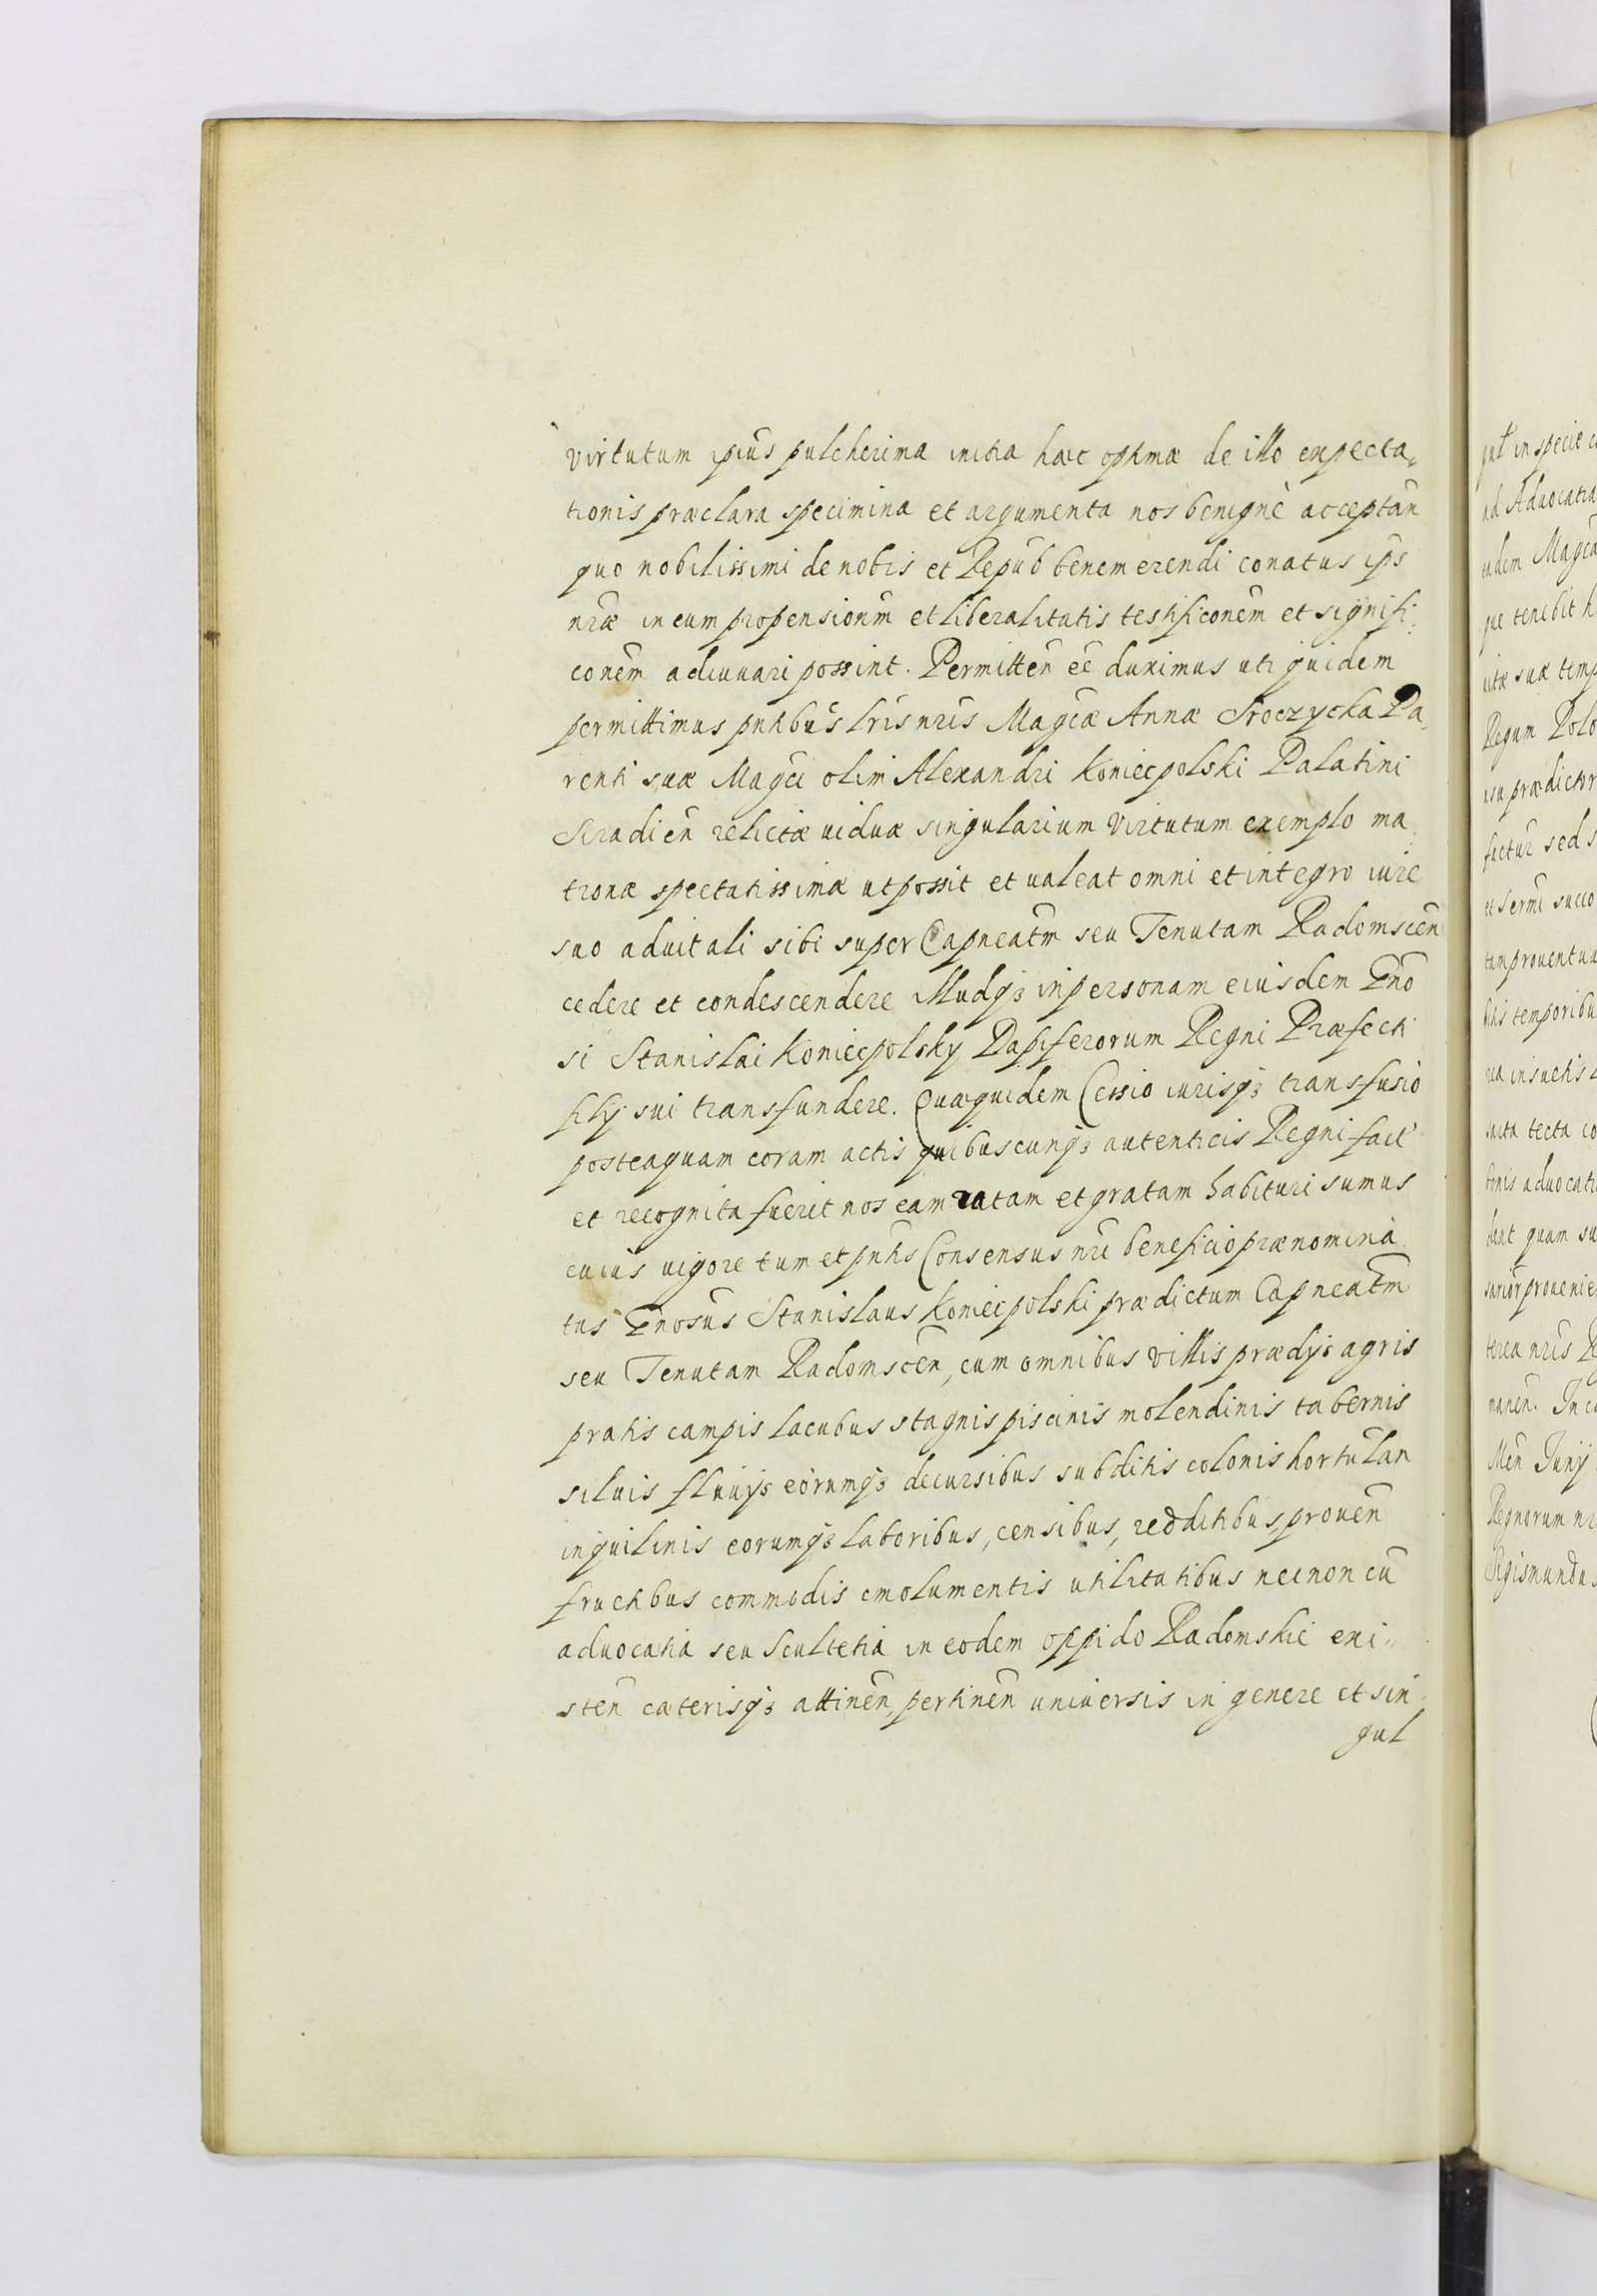 virtutum ipiūs pulcherima initia hæc optimæ de illo expecta„
tionis præclara specimina et argumenta nos benignè acceptān
quo nobilissimi de nobis et Repub̄ benemerendi conatus ips
nr̄æ in eum propensionm̄ et liberalitatis testificonēm et signifi„
conēm adiuuari possint. Permitten̄ eē duximus uti quidem
permittimus pn̄tibus lr̄is nr̄is Magc̄æ Annæ Sroczycka Pa„
renti suæ Magc̄i olim Alexandri Koniecpolski Palatini
Siradien̄ relictæ uiduæ singularium virtutum exemplo ma„
tronæ spectatissimæ ut possit et ualeat omni et integro iure
suo aduitali sibi super Capneatm̄ seu Tenutam Radomscen̄
cedere et condescendere Illudqȝ in personam eiusdem Gn̄o
si Stanislai Koniecpolsky Dapiferorum Regni Præfecti
filij sui transfundere. Quæquidem Cessio iurisqȝ transfusio
posteaquam coram actis quibuscunqȝ autenticis Regni fact
et recognita fuerit nos eam ratam et gratam habituri sumus
cuius uigore tum et pn̄tis Consensus nr̄i beneficio prænomina
tus Gn̄osus Stanislaus Koniecpolski prædictum Capneatm̄
seu Tenutam Radomscen̄, cum omnibus villis prædijs agris
pratis campis lacubus stagnis piscinis molendinis tabernis
siluis fluuijs eorumqȝ decursibus subditis colonis hortulan̄
inquilinis eorumqȝ laboribus, censibus, redditibus, prouen̄
fructibus commodis emolumentis utilitatibus necnon cū
aduocatia seu Scultetia in eodem oppido Radomskie exi„
sten̄ cæterisqȝ attinen̄, pertinen̄ uniuersis in genere et sin„
gul